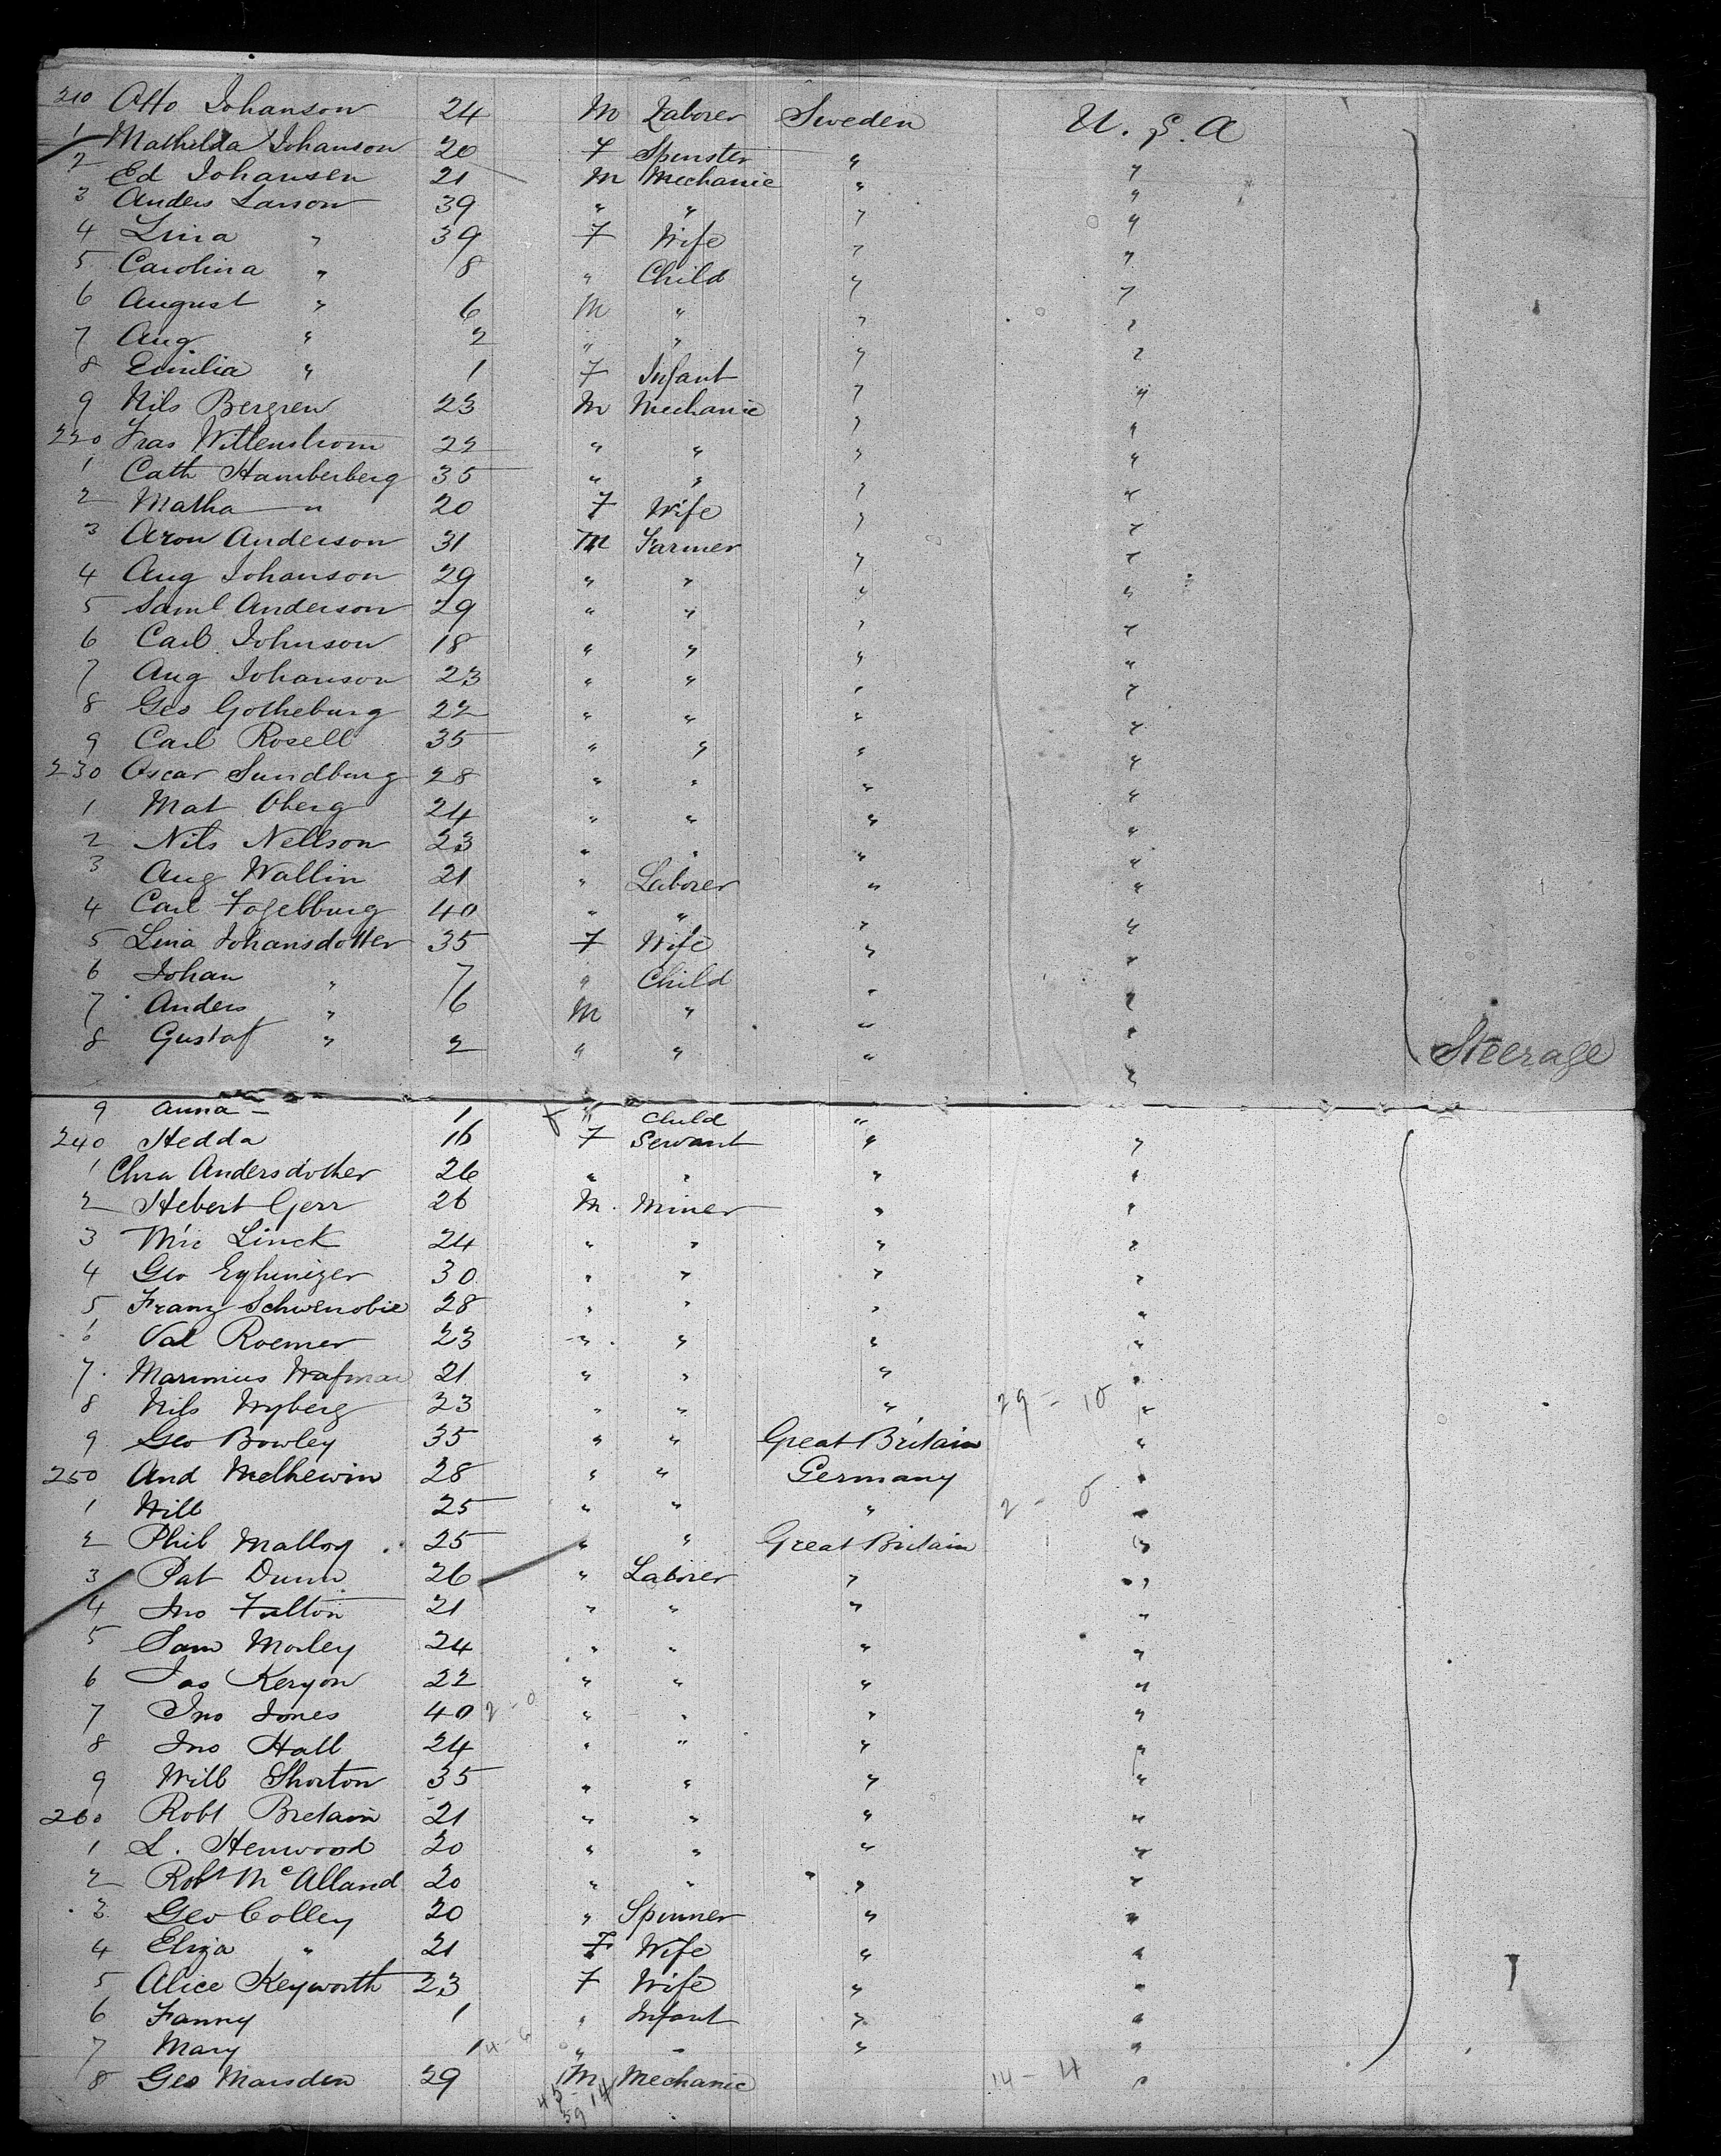 210 Otto Johanson 24 M Laborer Sweden U. S. A
1 Mathilda Johanson 20 F Spinster " "
2 Ed Johansen 21 M Mechanic " "
3 Anders Larson 39 " " " "
4 Lina " 39 F Wife " "
5 Carolina " 8 " Child " "
6 August " 6 M " " "
7 Aug " 2 " " " "
8 Emilia " 1 F Infant " "
9 Nils Bergren 23 M Mechanic " "
220 Fras Wittenstrom 22 " " " "
1 Cath Hamberberg 35 " " " "
2 Matha " 20 F Wife " "
3 Aron Anderson 31 M Farmer " "
4 Aug Johanson 29 " " " "
5 Saml Anderson 29 " " " "
6 Carl Johnson 18 " " " "
7 Aug Johanson 23 " " " "
8 Geo Gotheburg 22 " " " "
9 Carl Rosell 35 " " " "
230 Oscar Sundburg 28 " " " "
1 Mat Oberg 24 " " " "
2 Nils Nellson 23 " " " "
3 Aug Wallin 21 " Laborer " "
4 Carl Fogelburg 40 " " " "
5 Lina Johansdotter 35 F Wife " "
6 Johan " 7 " Child " "
7 Anders " 6 M " " "
8 Gustaf " 2 " " " " Steerage
9 Anna 1 " Child "
240 Hedda 16 F Servant " "
1 Andersdotter 26 " " " "
2 Hebert Gerr 26 M Miner " "
3 Linck 24 " " " "
4 Geo 30 " " " "
5 Franz Schwenobie 28 " " " "
6 Val Roemer 23 " " " "
7 21 " " " "
8 Nils Nyberg 23 " " " 29 - 10 "
9 Geo Bowley 35 " " Great Britain "
250 And Methewin 28 " " Germany "
1 Will 25 " " " 2 - 0 "
2 Phil Malloy 25 " " Great Britain "
3 Pat Dunn 26 " Laborer " "
4 Jno Fulton 21 " " " "
5 Sam Morley 24 " " " "
6 Jas Keryon 22 " " " "
7 Jno Jones 40 2 - 0 " " " "
8 Jno Hall 24 " " " "
9 Will Shorton 35 " " " "
260 Robt Bretain 21 " " " "
1 L. Henwood 20 " " " "
2 Robt McAlland 20 " " " "
3 Geo Colley 20 " Spinner " "
4 Eliza " 21 F Wife " "
5 Alice Keyworth 23 F Wife " "
6 Fanny 1 " Infant " "
7 Mary 1 14 - 6 " " " "
8 Geo Marsden 29 M Mechanic 14 - 4 "
45 14
59